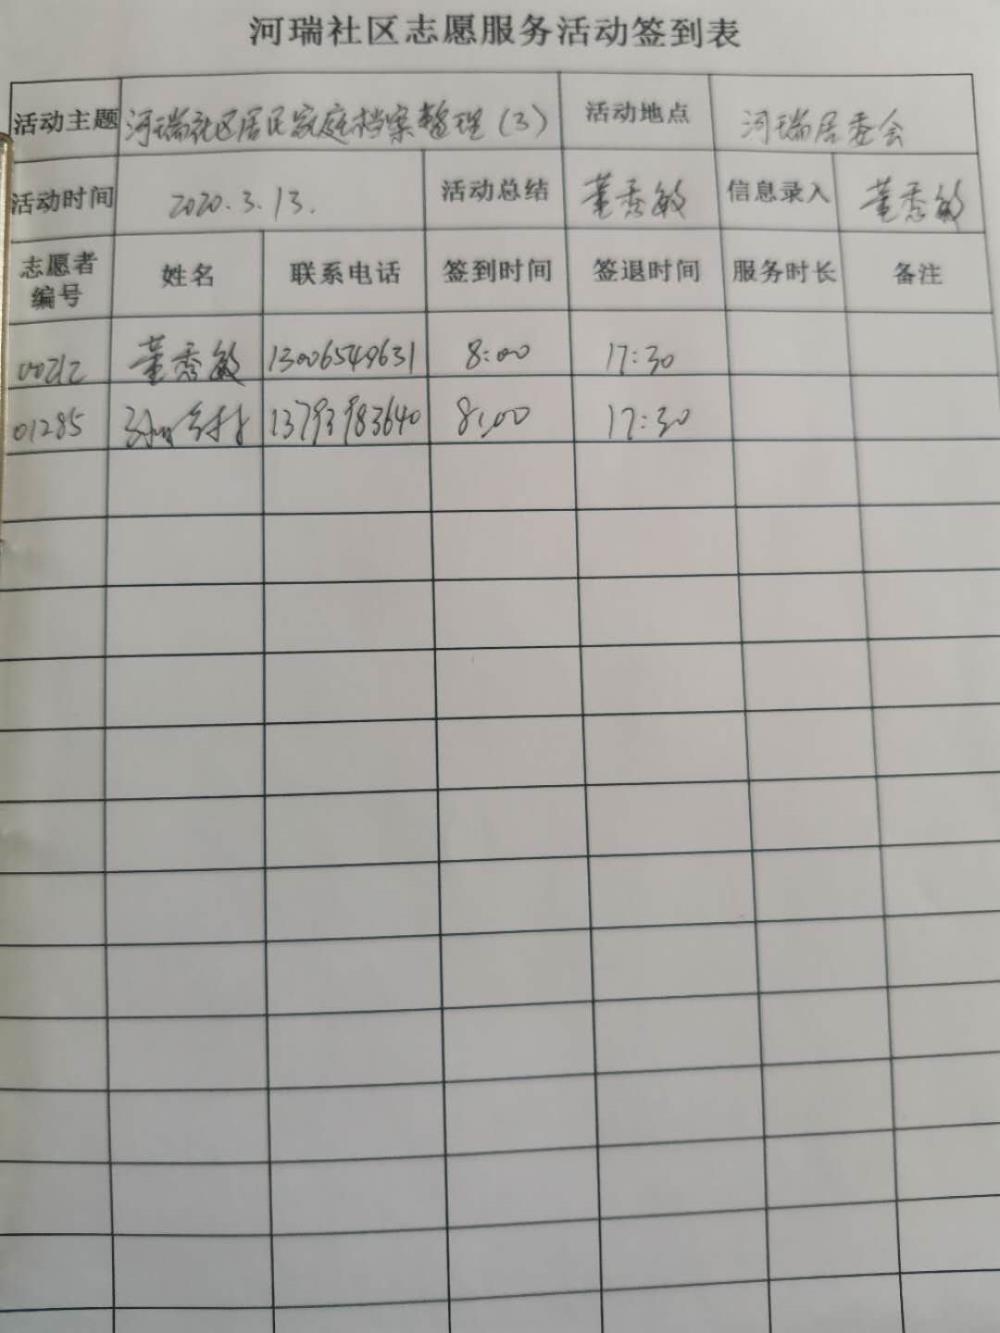 河瑞社区志愿服务活动签到表
活动主题 河瑞社区居民家庭档案整理（3） 活动地点 河瑞居委会
活动时间 2020.3.13. 活动总结 董秀敏 信息录入 董秀敏
志愿者编号 姓名 联系电话 签到时间 签退时间 服务时长 备注
00212 董秀敏 13006549631 8:00 17:30
01285 13793983640 8:00 17:30